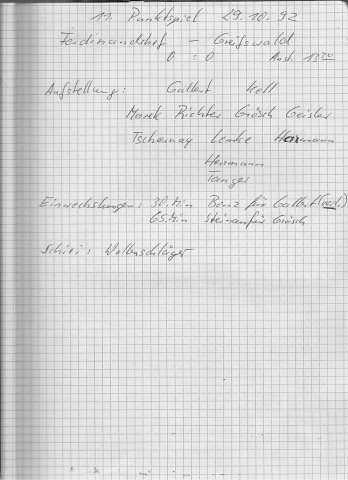 11. Punktspiel 29.10.92
Ferdinandshof - Greifswald
0 : 0 Anst. 13.20
Aufstellung: Gallert Kell
Marek Richter Grösch Geisler
Tschernay Lemke Hermann
Hermann
Tanger
Einwechslungen: 30. Min Benz für Gallert (verl.)
65. Min für Grösch
Schiri: Wollenschläger